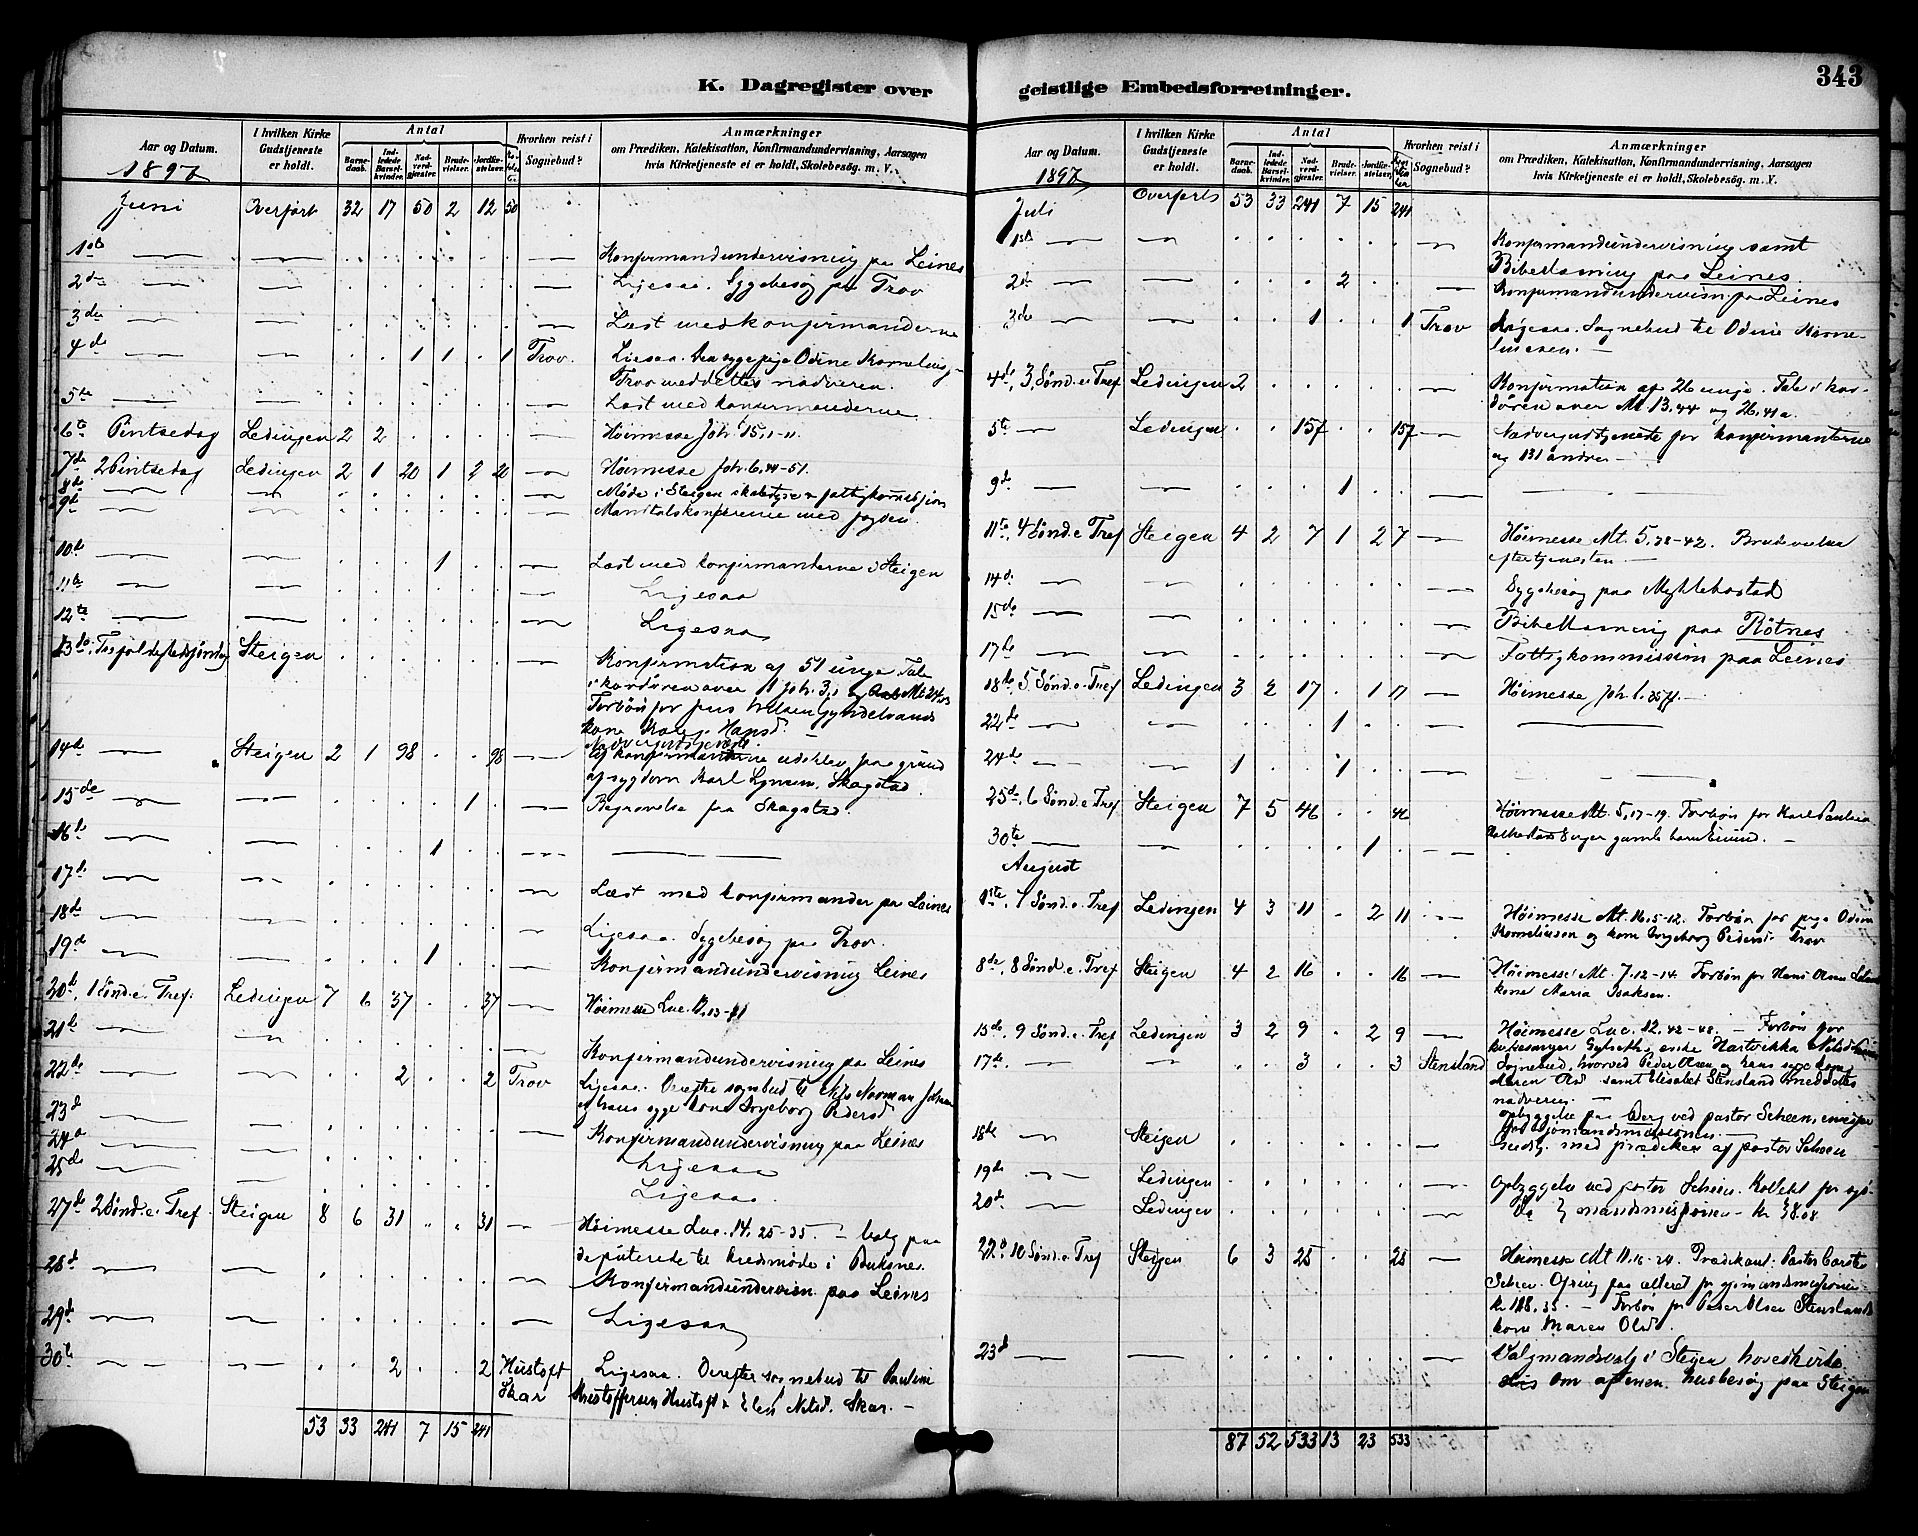 K. Dagregister over
geistlige Embedsforretninger.
343
Aar og Datum.
1897
I hvilken Kirke Gudstjeneste er holdt.
Antal
Barnedaab.
Indledede Barselkvinder.
Nadverdgjæster.
Brudevielser.
Jordfæstelser.
Hvorhen reist i Sognebud?
Anmærkninger
om Prædiken, Katekisation, Konfirmandundervisning, Aarsagen
hvis Kirketjeneste ei er holdt, Skolebesög. m. V.
Juni Overført 32 17 50 2 12 50
1ste Konfirmandundervisning paa Leines
2de Ligesaa. Sygebesøg paa Trov
3de Læst med konfirmanderne
4de 1 1 1 Trov. Ligesaa. Den syge pige Odine Kornelius-
Trov meddeltes nadveren.
5te Læst med konfirmanderne
6te Pintsedag Ledingen 2 2 Høimesse Joh. 15,1-11.
7de 2 Pintsedag Ledingen 2 1 20 1 2 20 Høimesse Joh. 6,44-51.
8de Møde i Steigen skolestyre &
9de
10de 1 Læst med konfirmanterne i Steigen
11te Ligesaa
12te Ligesaa
13de Steigen Konfirmation af 51 unge. Tale
i kordøren over 1 Joh. 3,1
Forbøn for Jens
kone
14de Steigen 2 1 98 98 Nadvergudstjeneste.
udeblev paa grund
af sygdom Karl Skagstad.
15de 1 Begravelse paa Skagstad.
16de 1
17de Læst med konfirmander paa Leines
18de Ligesaa. Sygebesøg paa Trov.
19de 1 Konfirmandundervisning Leines
20de, 1 Sønd. e. Tref. Ledingen 7 6 37 37 Høimesse Luc.
21de Konfirmandundervisning paa Leines
22de 2 2 Trov Ligesaa. Derefter sognebud til Nils Norman
& hans syge kone Ingeborg Pedersd.
23de Konfirmandundervisning paa Leines
24de Ligesaa
25de Ligesaa.
27de 2 Sønd. e. Tref. Steigen 8 6 31 31 Høimesse Luc. 14,25-35. - Valg paa
deputerede til kredsmøde i Buksnes.
28de Konfirmandundervisn. paa Leines
29de Ligesaa
30te 2 2 Hustoft Ligesaa. Derefter sognebud til Pauline
Skar Kristoffersen Hustoft & Elen Nilsd. Skar.-
53 33 241 7 15 241
Aar og Datum.
1897
I hvilken Kirke Gudstjeneste er holdt.
Antal
Barnedaab.
Indledede Barselkvinder.
Nadverdgjæster.
Brudevielser.
Jordfæstelser.
Hvorhen reist i Sognebud?
Anmærkninger
om Prædiken, Katekisation, Konfirmandundervisning, Aarsagen
hvis Kirketjeneste ei er holdt, Skolebesög. m. V.
Juli Overført 53 33 241 7 15 241
1ste Konfirmandundervisning samt
Bibellæsning paa Leines
2de 2 Konfirmandundervisn. paa Leines
3de 1 1 Trov Ligesaa. Sognebud til Odine Korne-
liussen.-
4de, 3 Sønd. e. Tref Ledingen 2 Konfirmation af 26 unge. Tale i kor-
døren over Mt. 13,44 og 26,41a.
5te Ledingen 157 157 Nadvergudstjeneste for konfirmanterne
og 131 andre-
9de 1
11te, 4 Sønd. e Tref Steigen 4 2 7 1 2 7 Høimesse Mt. 5,38-42. Brudevielse
eftertjenesten.-
14de Sygebesøg paa Myklebostad
15de Bibellæsning paa Rötnes
17de Fattigkommission paa Leines
18de, 5 Sønd. e. Tref Ledingen 3 2 17 1 17 Høimesse Joh. 1,35ff.-
22de 1
24de 1 1
25de, 6 Sønd. e Tref Steigen 7 5 46 46 Høimesse Mt. 5,17-19. Forbøn for Karl
8 uger gamle barn
30te 1
August
1ste, 7 Sønd. e. Tref Ledingen 4 3 11 2 11 Høimesse Mt. 16,5-12. Forbøn for pige Odine
Korneliussen og kone Ingeborg Pedersd. Trov
8de, 8 Sønd. e. Tref Steigen 4 2 16 16 Høimesse Mt. 7,12-14. Forbøn for Hans Olsen
kone Maria Isaksen.
15de, 9 Sønd. e Tref Ledingen 3 2 9 2 9 Høimesse Luc. 12,42-48. - Forbøn for
kirkesanger enke Hartvikka Nilsd.
17de 3 3 Stensland Sognebud, hvorved Peder Olsen og hans syge kone
Maren Olsd. samt Elisabet Stensland meddeltes
nadveren.-
18de Steigen Opbyggelse paa ved pastor Scheen,
for sjømandsmissionen.
Gudstj. med prædiken af pastor Scheen
19de Ledingen Opbyggelse ved pastor Scheen. Kollekt for sjø-
20de Ledingen Do } mandsmissionen - kr 38.08
22de 10 Sønd. e Tref Steigen 6 3 25 25 Høimesse Mt 11,16-24. Prædikant: Pastor Carsten
Scheen. Ofring paa alteret for sjømandsmissionen
kr 118,35.- Forbøn for Peder Olsen Stenslands
kone Maren Olsd.
23de Valgmandsvalg i Steigen hovedkirke.
Om aftenen husbesøg paa Steigen
87 52 533 13 23 533